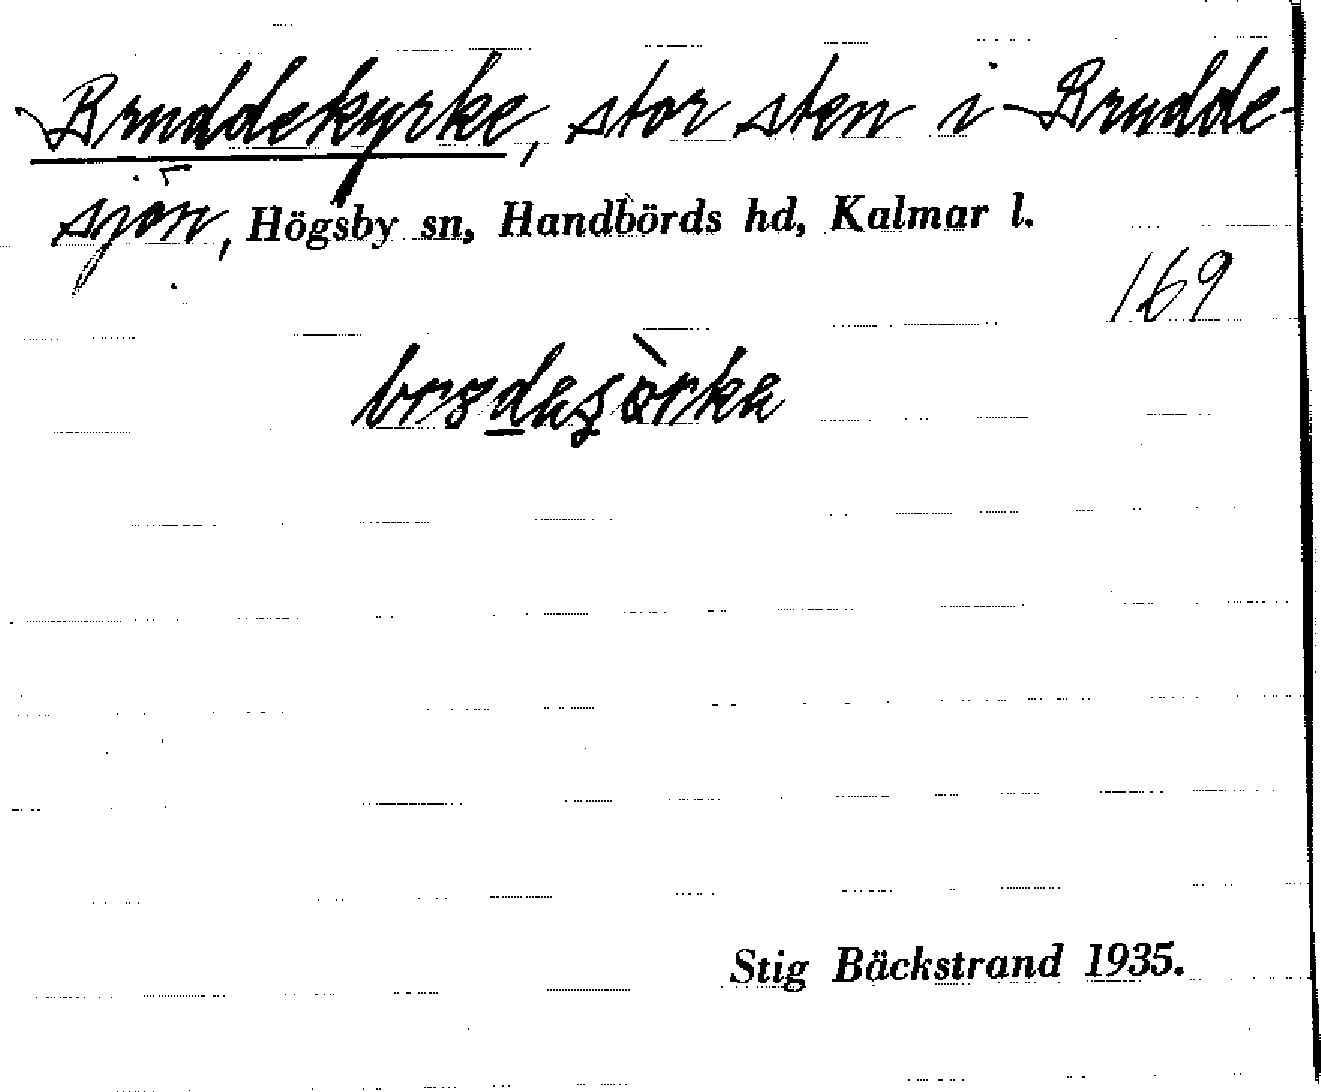 Bruddekyrke, stor sten i Brudde-
sjön, Högsby sn, Handbörds hd, Kalmar l.
169
Stig Bäckstrand 1935.